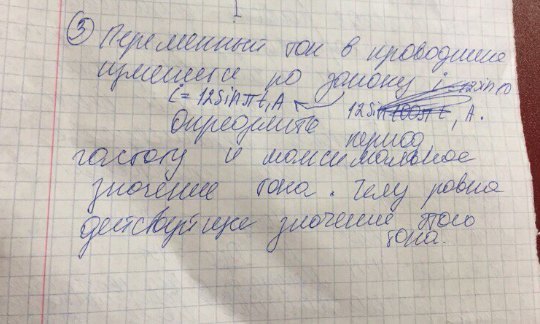 ③ Переменный ток в проводнике
изменяется по закону i
i = 12sinπt, A 12sin100πt, A.
Определите период,
частоту и максимальное
значение тока. Чему равна
действующее значение этого
тока.